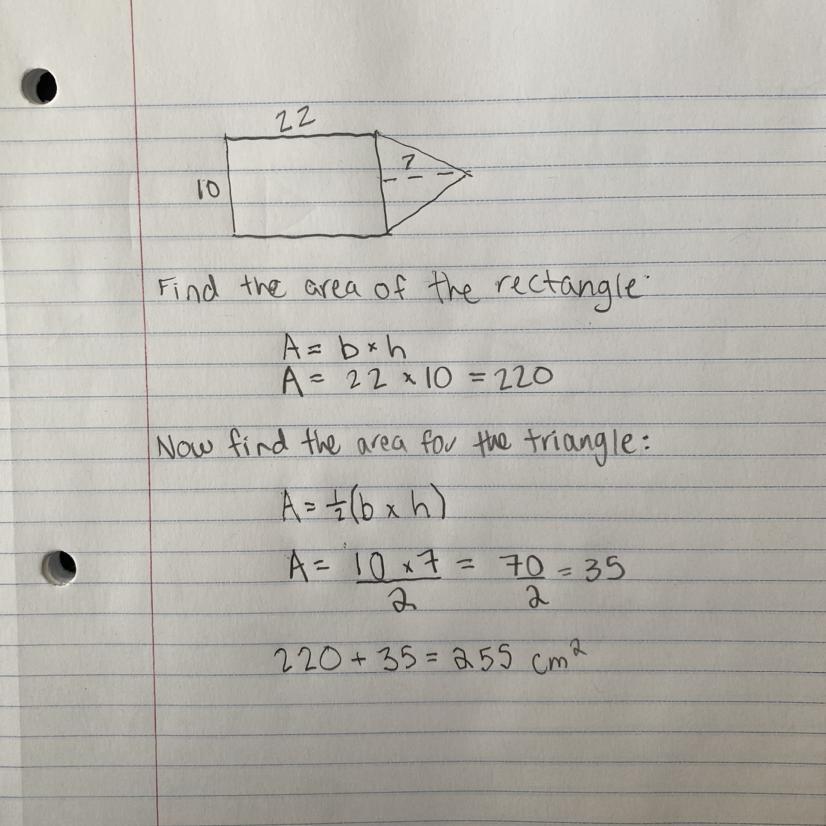 22
10
7
Find the area of the rectangle:
A = b × h
A = 22 × 10 = 220
Now find the area for the triangle:
A = ½(b × h)
A = 10 × 7 / 2 = 70 / 2 = 35
220 + 35 = 255 cm²